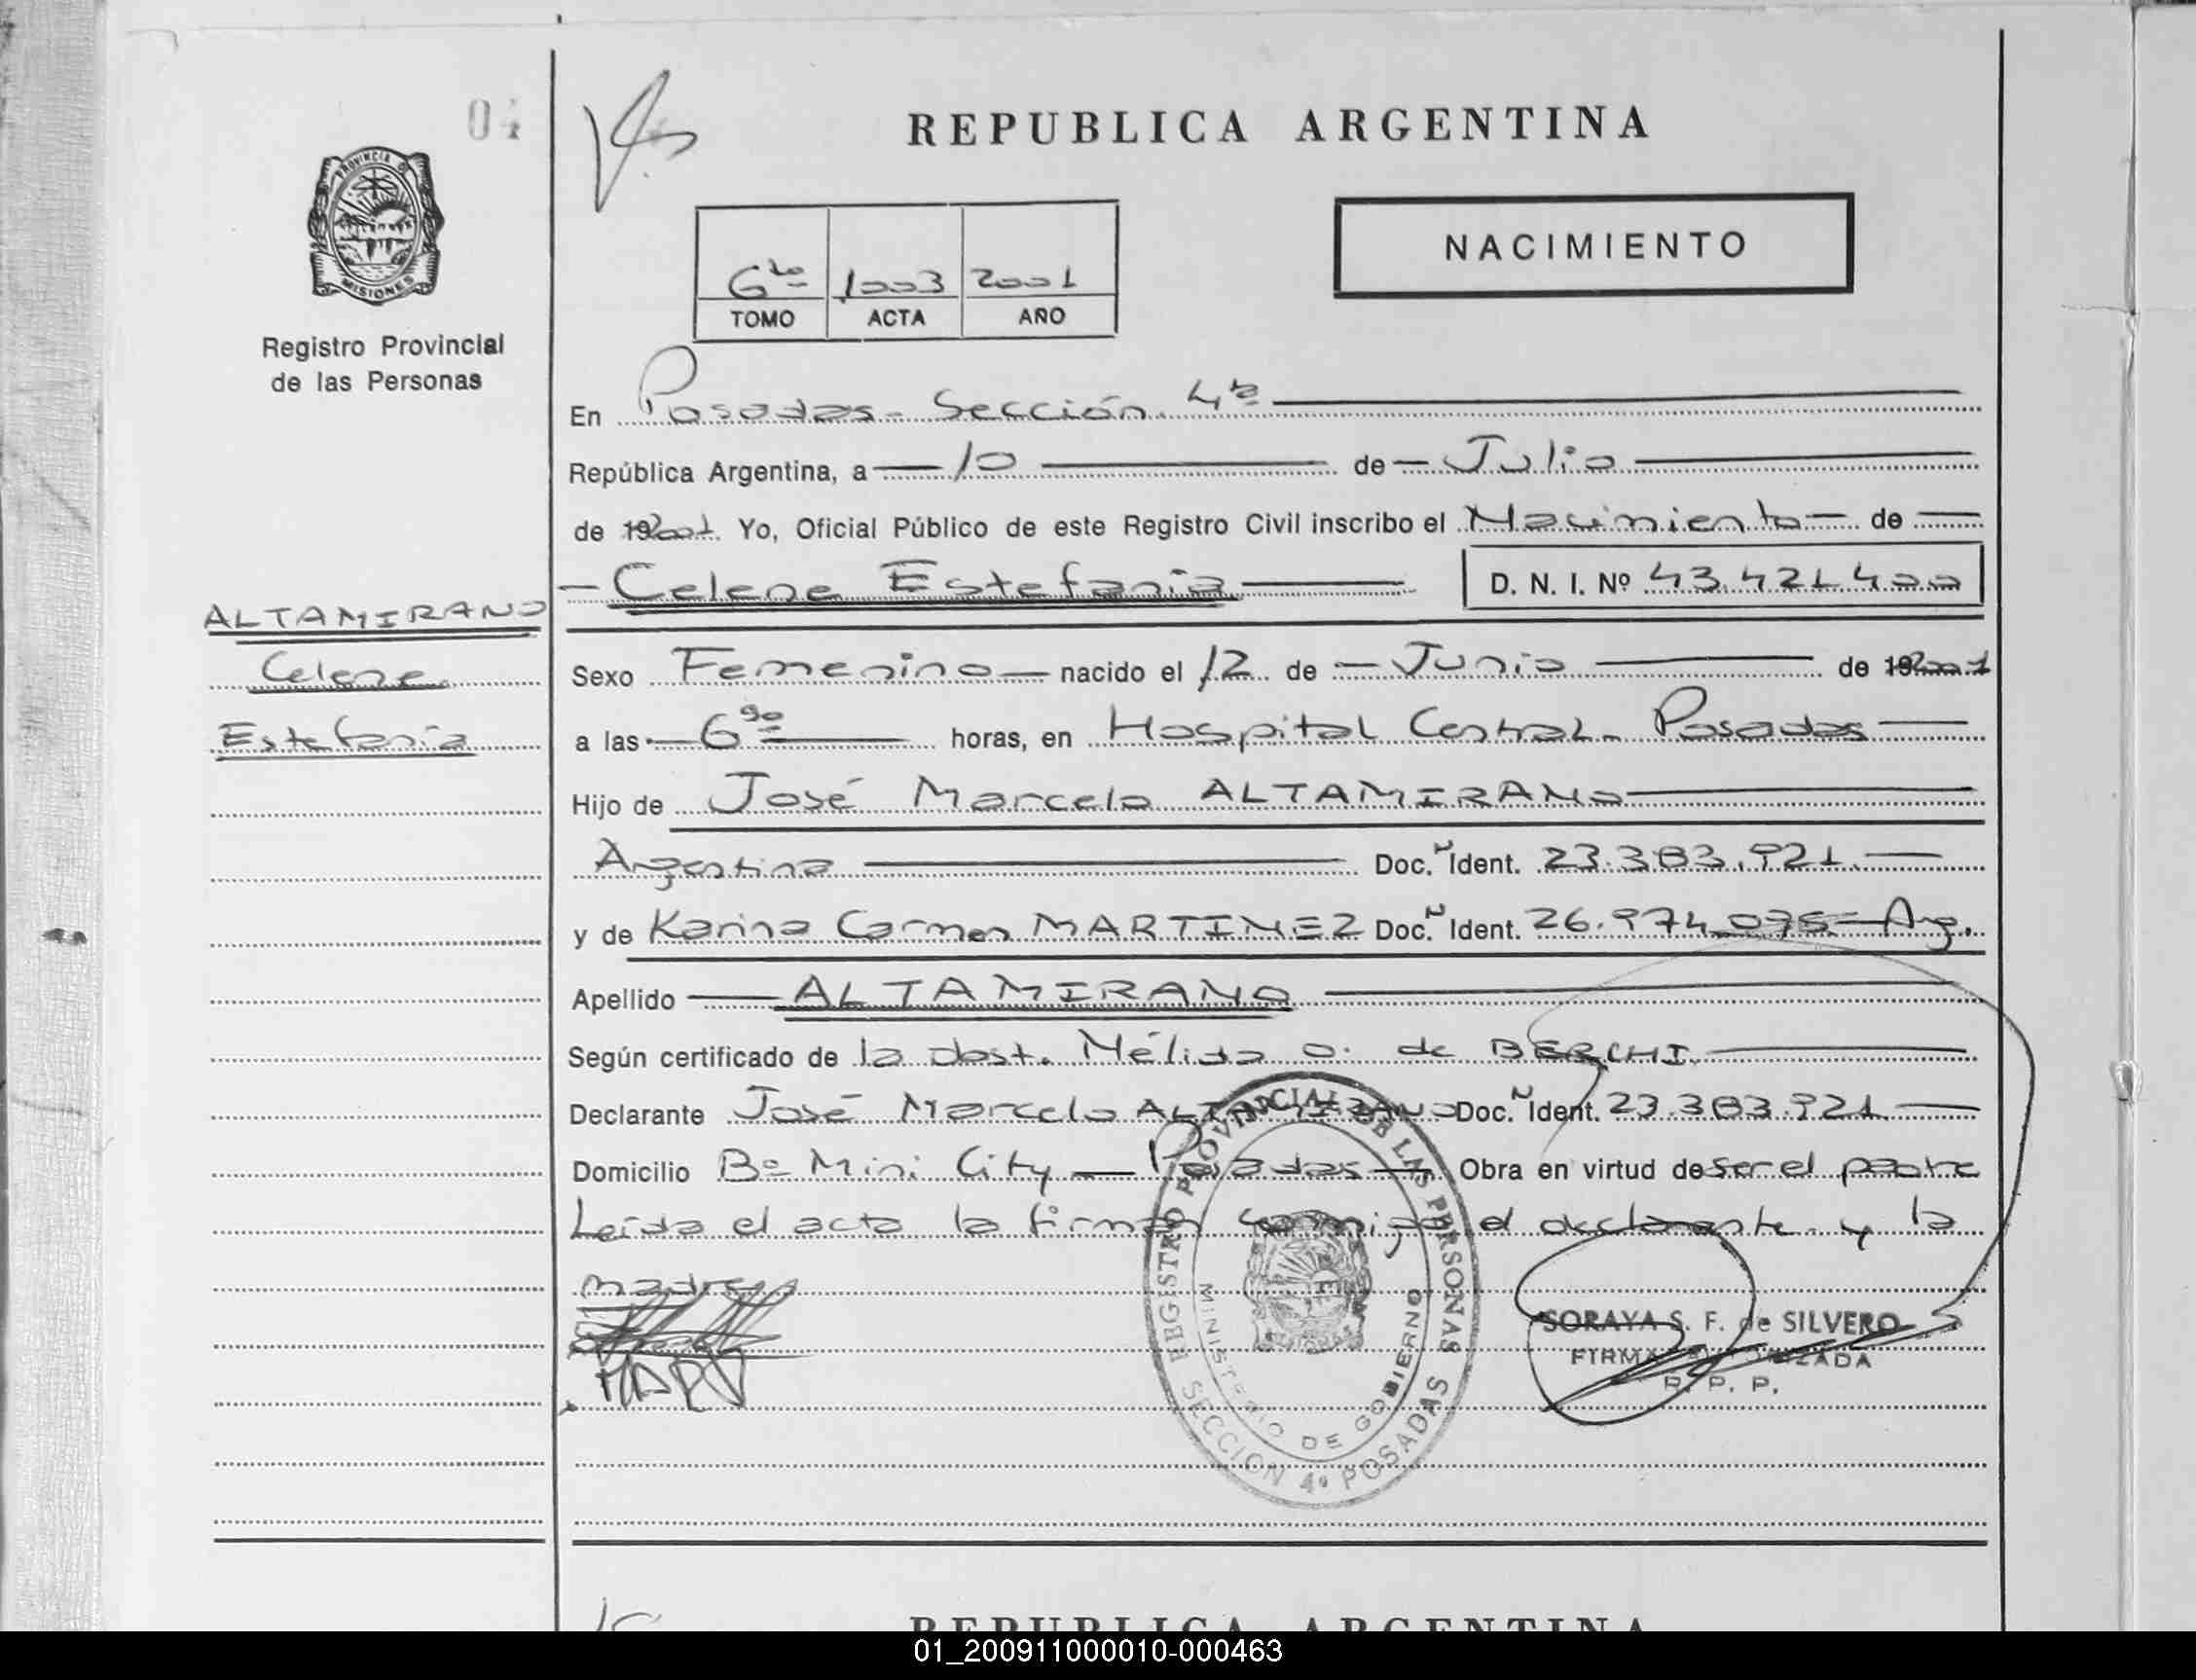 04
REPUBLICA ARGENTINA
PROVINCIA DE
MISIONES
Registro Provincial
de las Personas
NACIMIENTO
6to 1003 2001
TOMO ACTA AÑO
En Posadas - Sección 4ta
República Argentina, a 10 de Julio
de 192001 Yo, Oficial Público de este Registro Civil inscribo el Nacimiento de
Celene Estefania D. N. I. Nº 43.421.400
ALTAMIRANO
Celene
Estefania
Sexo Femenino nacido el 12 de Junio de 192001
a las 6 horas, en Hospital Central - Posadas
Hijo de José Marcelo ALTAMIRANO
Argentina Doc. Ident. 23.383.921
y de Karina Carmen MARTINEZ Doc. Ident. 26.974.075 - Arg.
Apellido ALTAMIRANO
Según certificado de la obst. Nélida O. de BERCHI
Declarante José Marcelo ALTAMIRANO Doc. Ident. 23.383.921
Domicilio Bº Mini City - Posadas Obra en virtud de ser el padre
Leída el acta la firman conmigo el declarante y la
madre
REGISTRO PROVINCIAL DE LAS PERSONAS
MINISTERIO DE GOBIERNO
SECCION 4º POSADAS
SORAYA S. F. de SILVERO
FIRMA AUTORIZADA
R. P. P.
REPUBLICA ARGENTINA
01_200911000010-000463